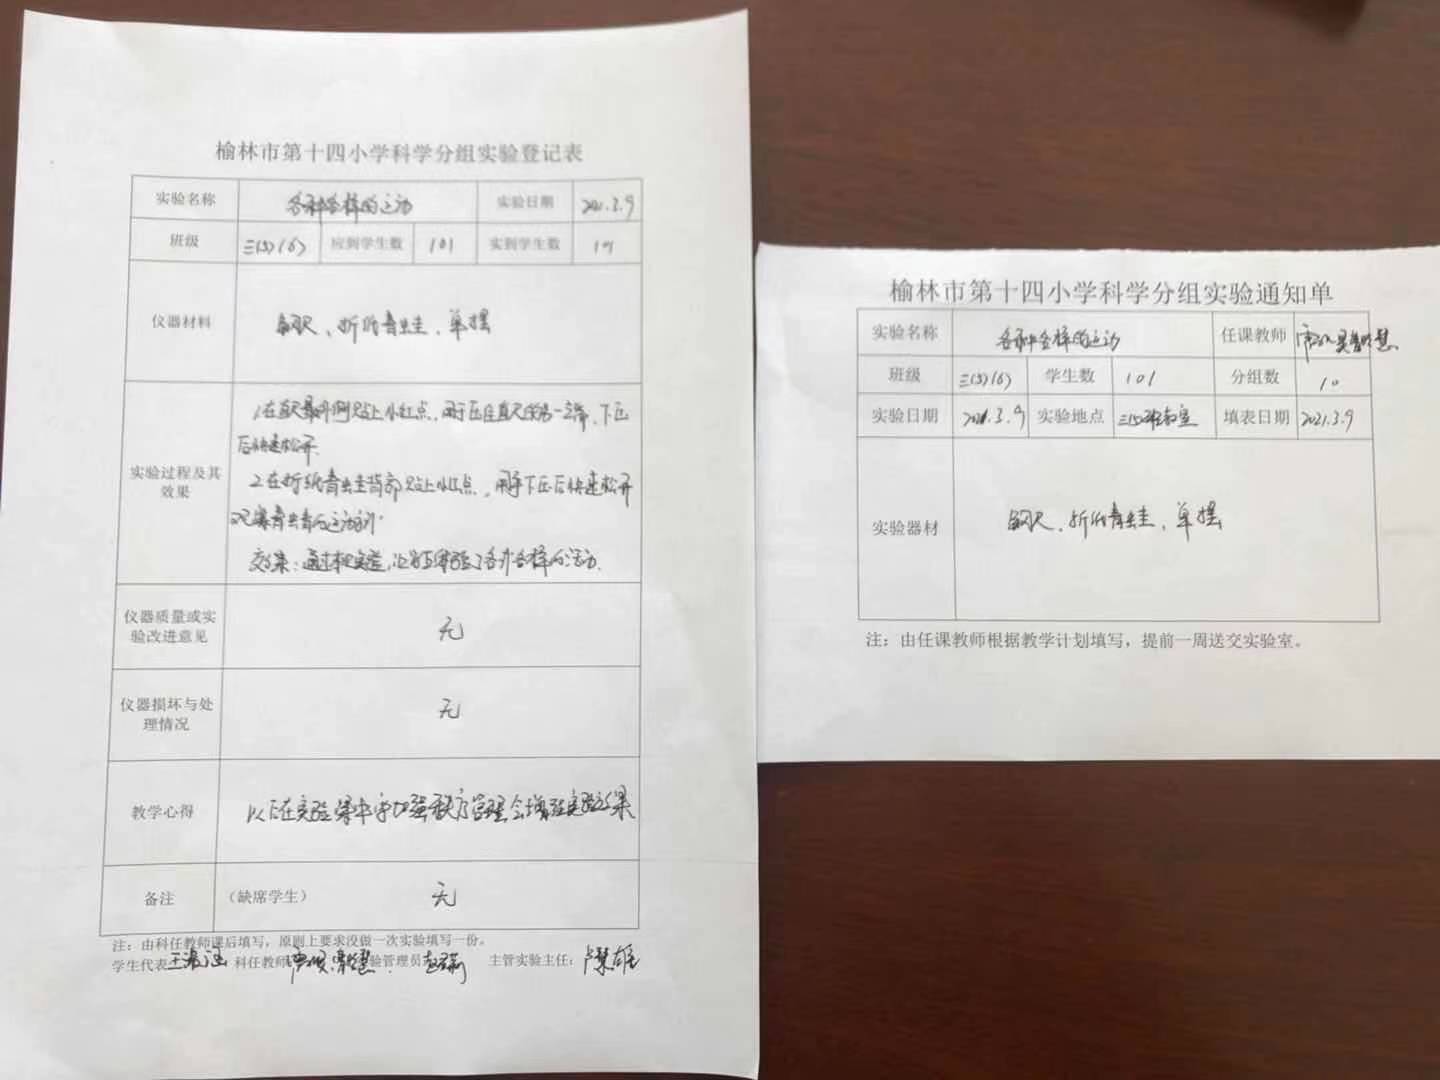 榆林市第十四小学科学分组实验登记表
实验名称 各种各样的运动 实验日期 2021.3.9
班级 三(5)(6) 应到学生数 101 实到学生数
仪器材料 钢尺、折纸青蛙、单摆
实验过程及其效果
1.在直尺最外侧贴上小红点，用手压住直尺的另一端，下压
后快速松开.
2.在折纸青蛙背部贴上小红点，用手下压后快速松开
观察青蛙的运动
效果：通过 各种各样的运动.
仪器质量或实验改进意见 无
仪器损坏与处理情况 无
教学心得 以后在实验课中要加强秩序管理会增强实验效果
备注 （缺席学生） 无
注：由科任教师课后填写，原则上要求没做一次实验填写一份。
学生代表 科任教师 验管理员 主管实验主任：
榆林市第十四小学科学分组实验通知单
实验名称 各种各样的运动 任课教师
班级 三(5)(6) 学生数 101 分组数 10
实验日期 2021.3.9 实验地点 教室 填表日期 2021.3.9
实验器材 钢尺、折纸青蛙、单摆
注：由任课教师根据教学计划填写，提前一周送交实验室。